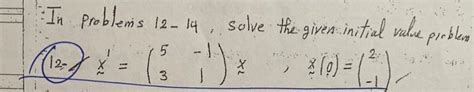 In problems 12-14, solve the given initial value problem
12- x' = ( 5 -1 ) x , x(0) = ( 2 )
( 3 1 ) ( -1 )